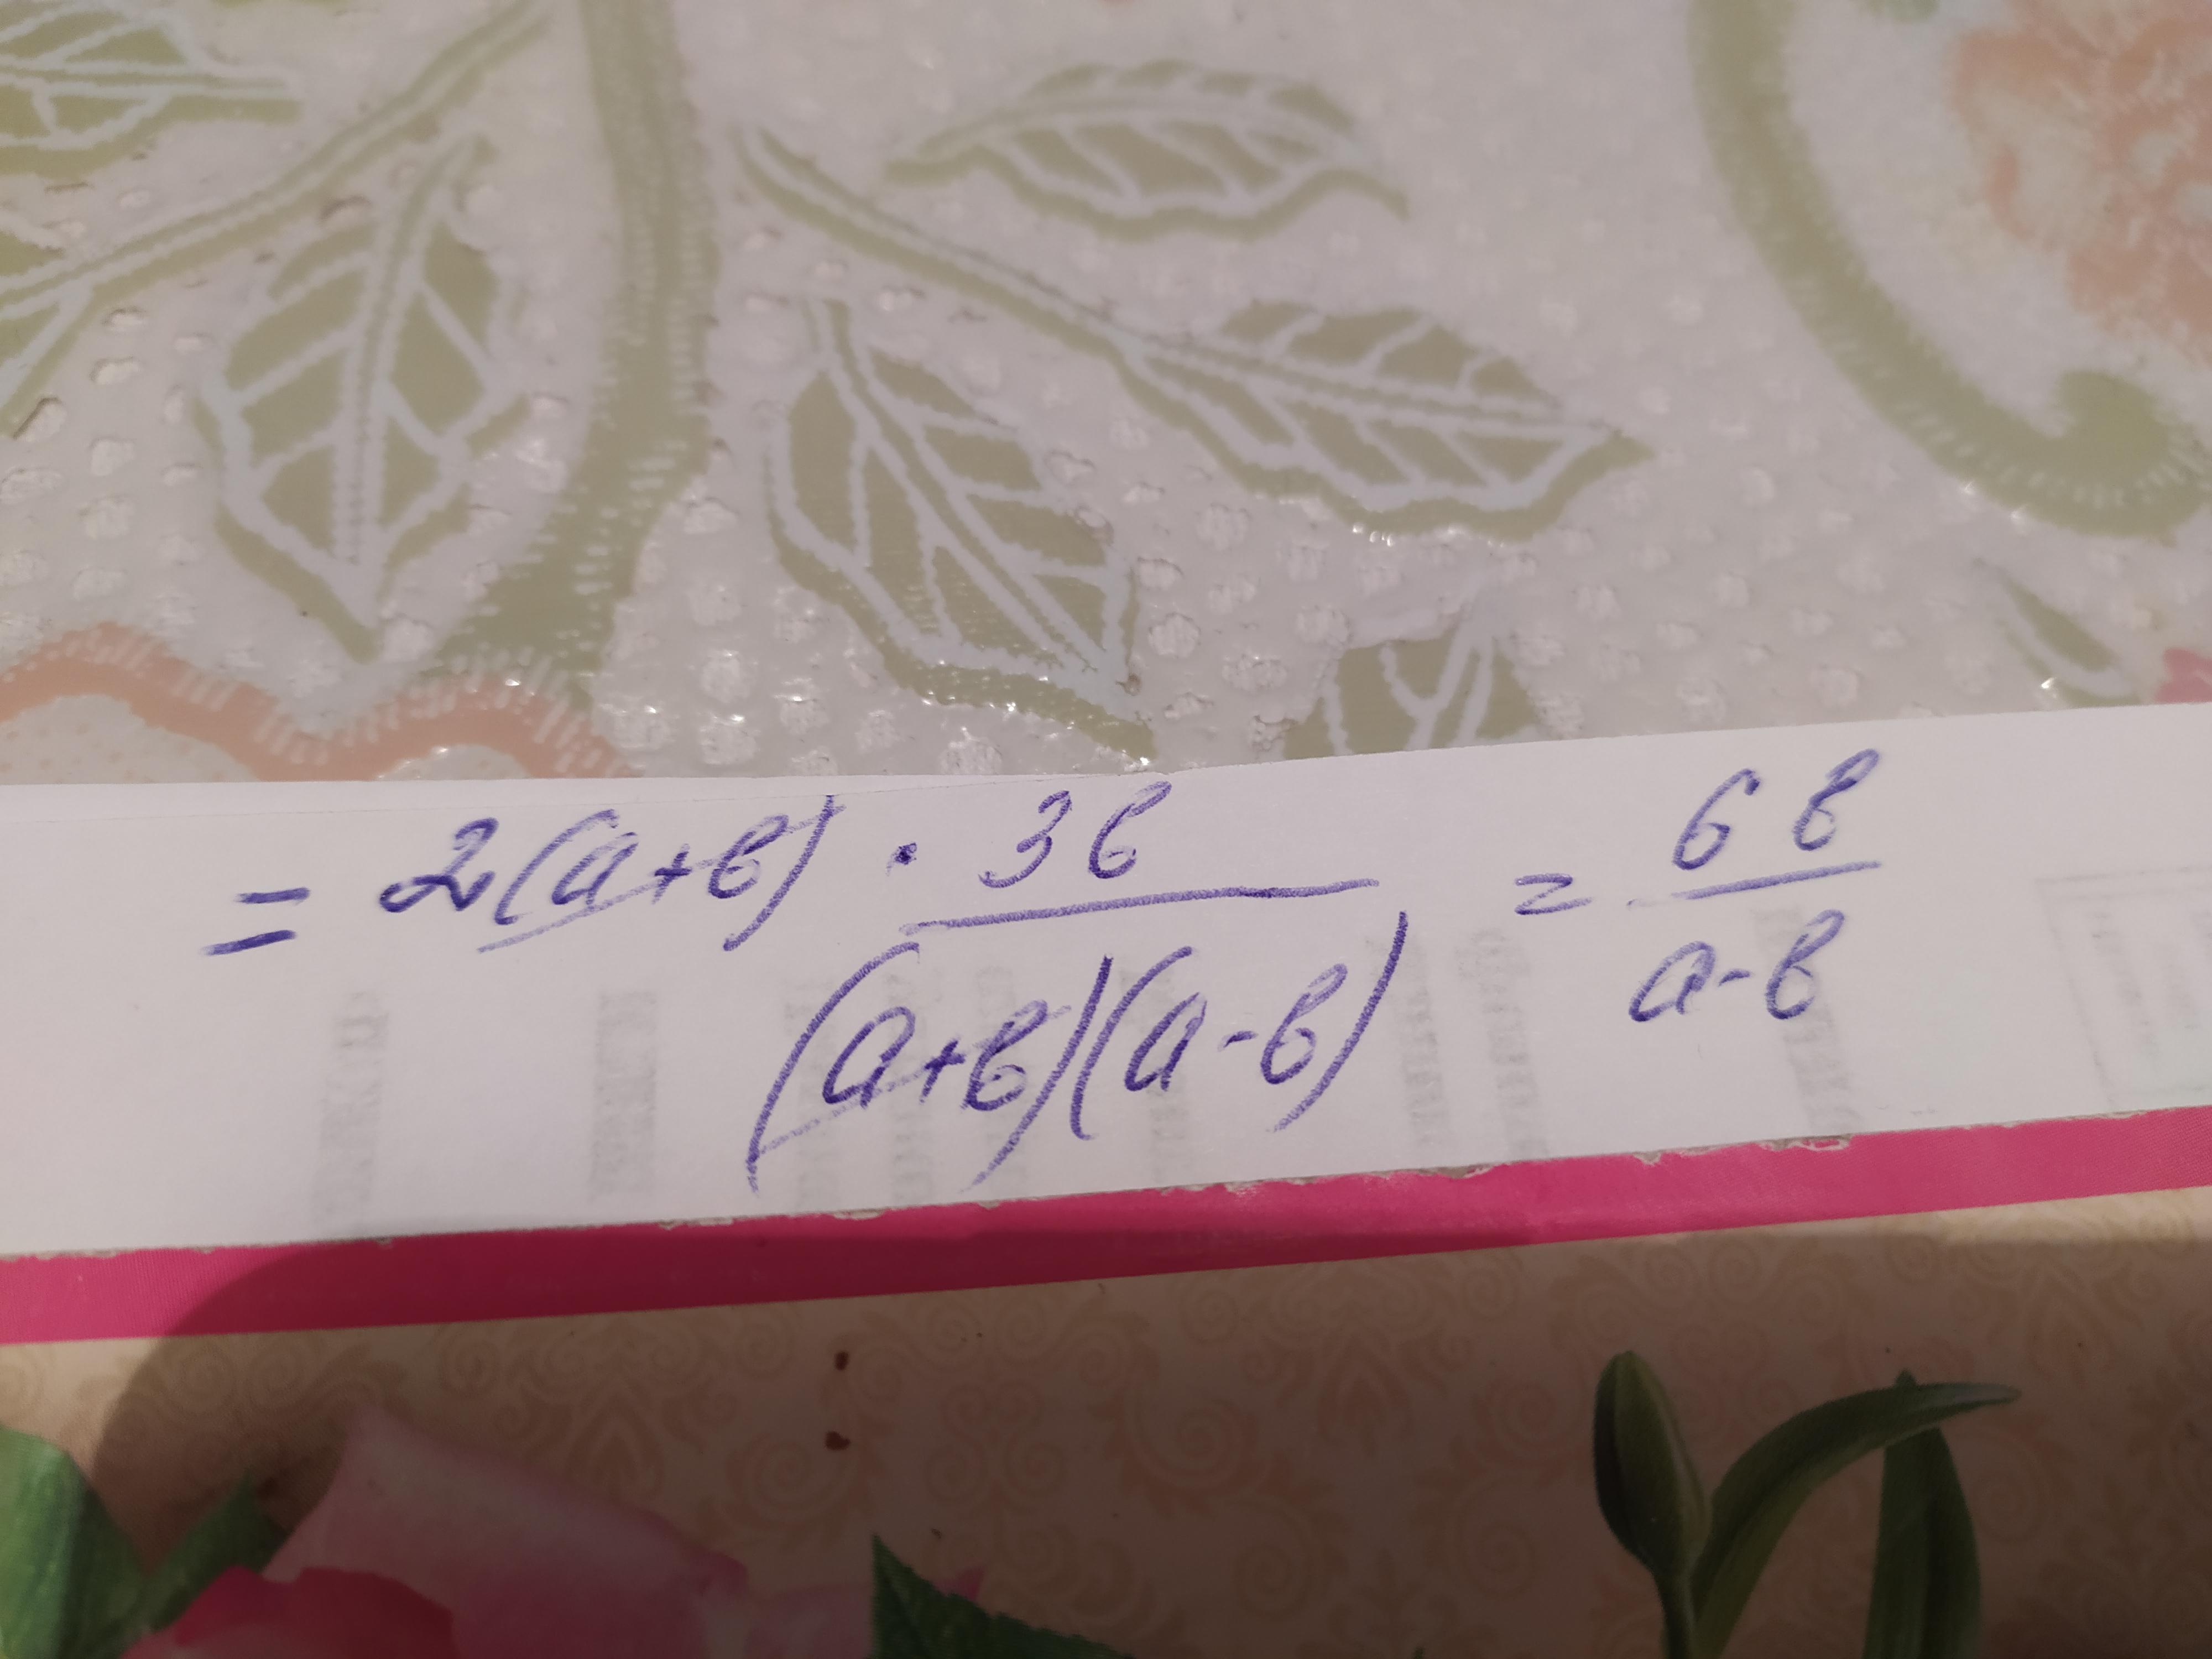 = 2(a+b) · 3b / (a+b)(a-b) = 6b / a-b